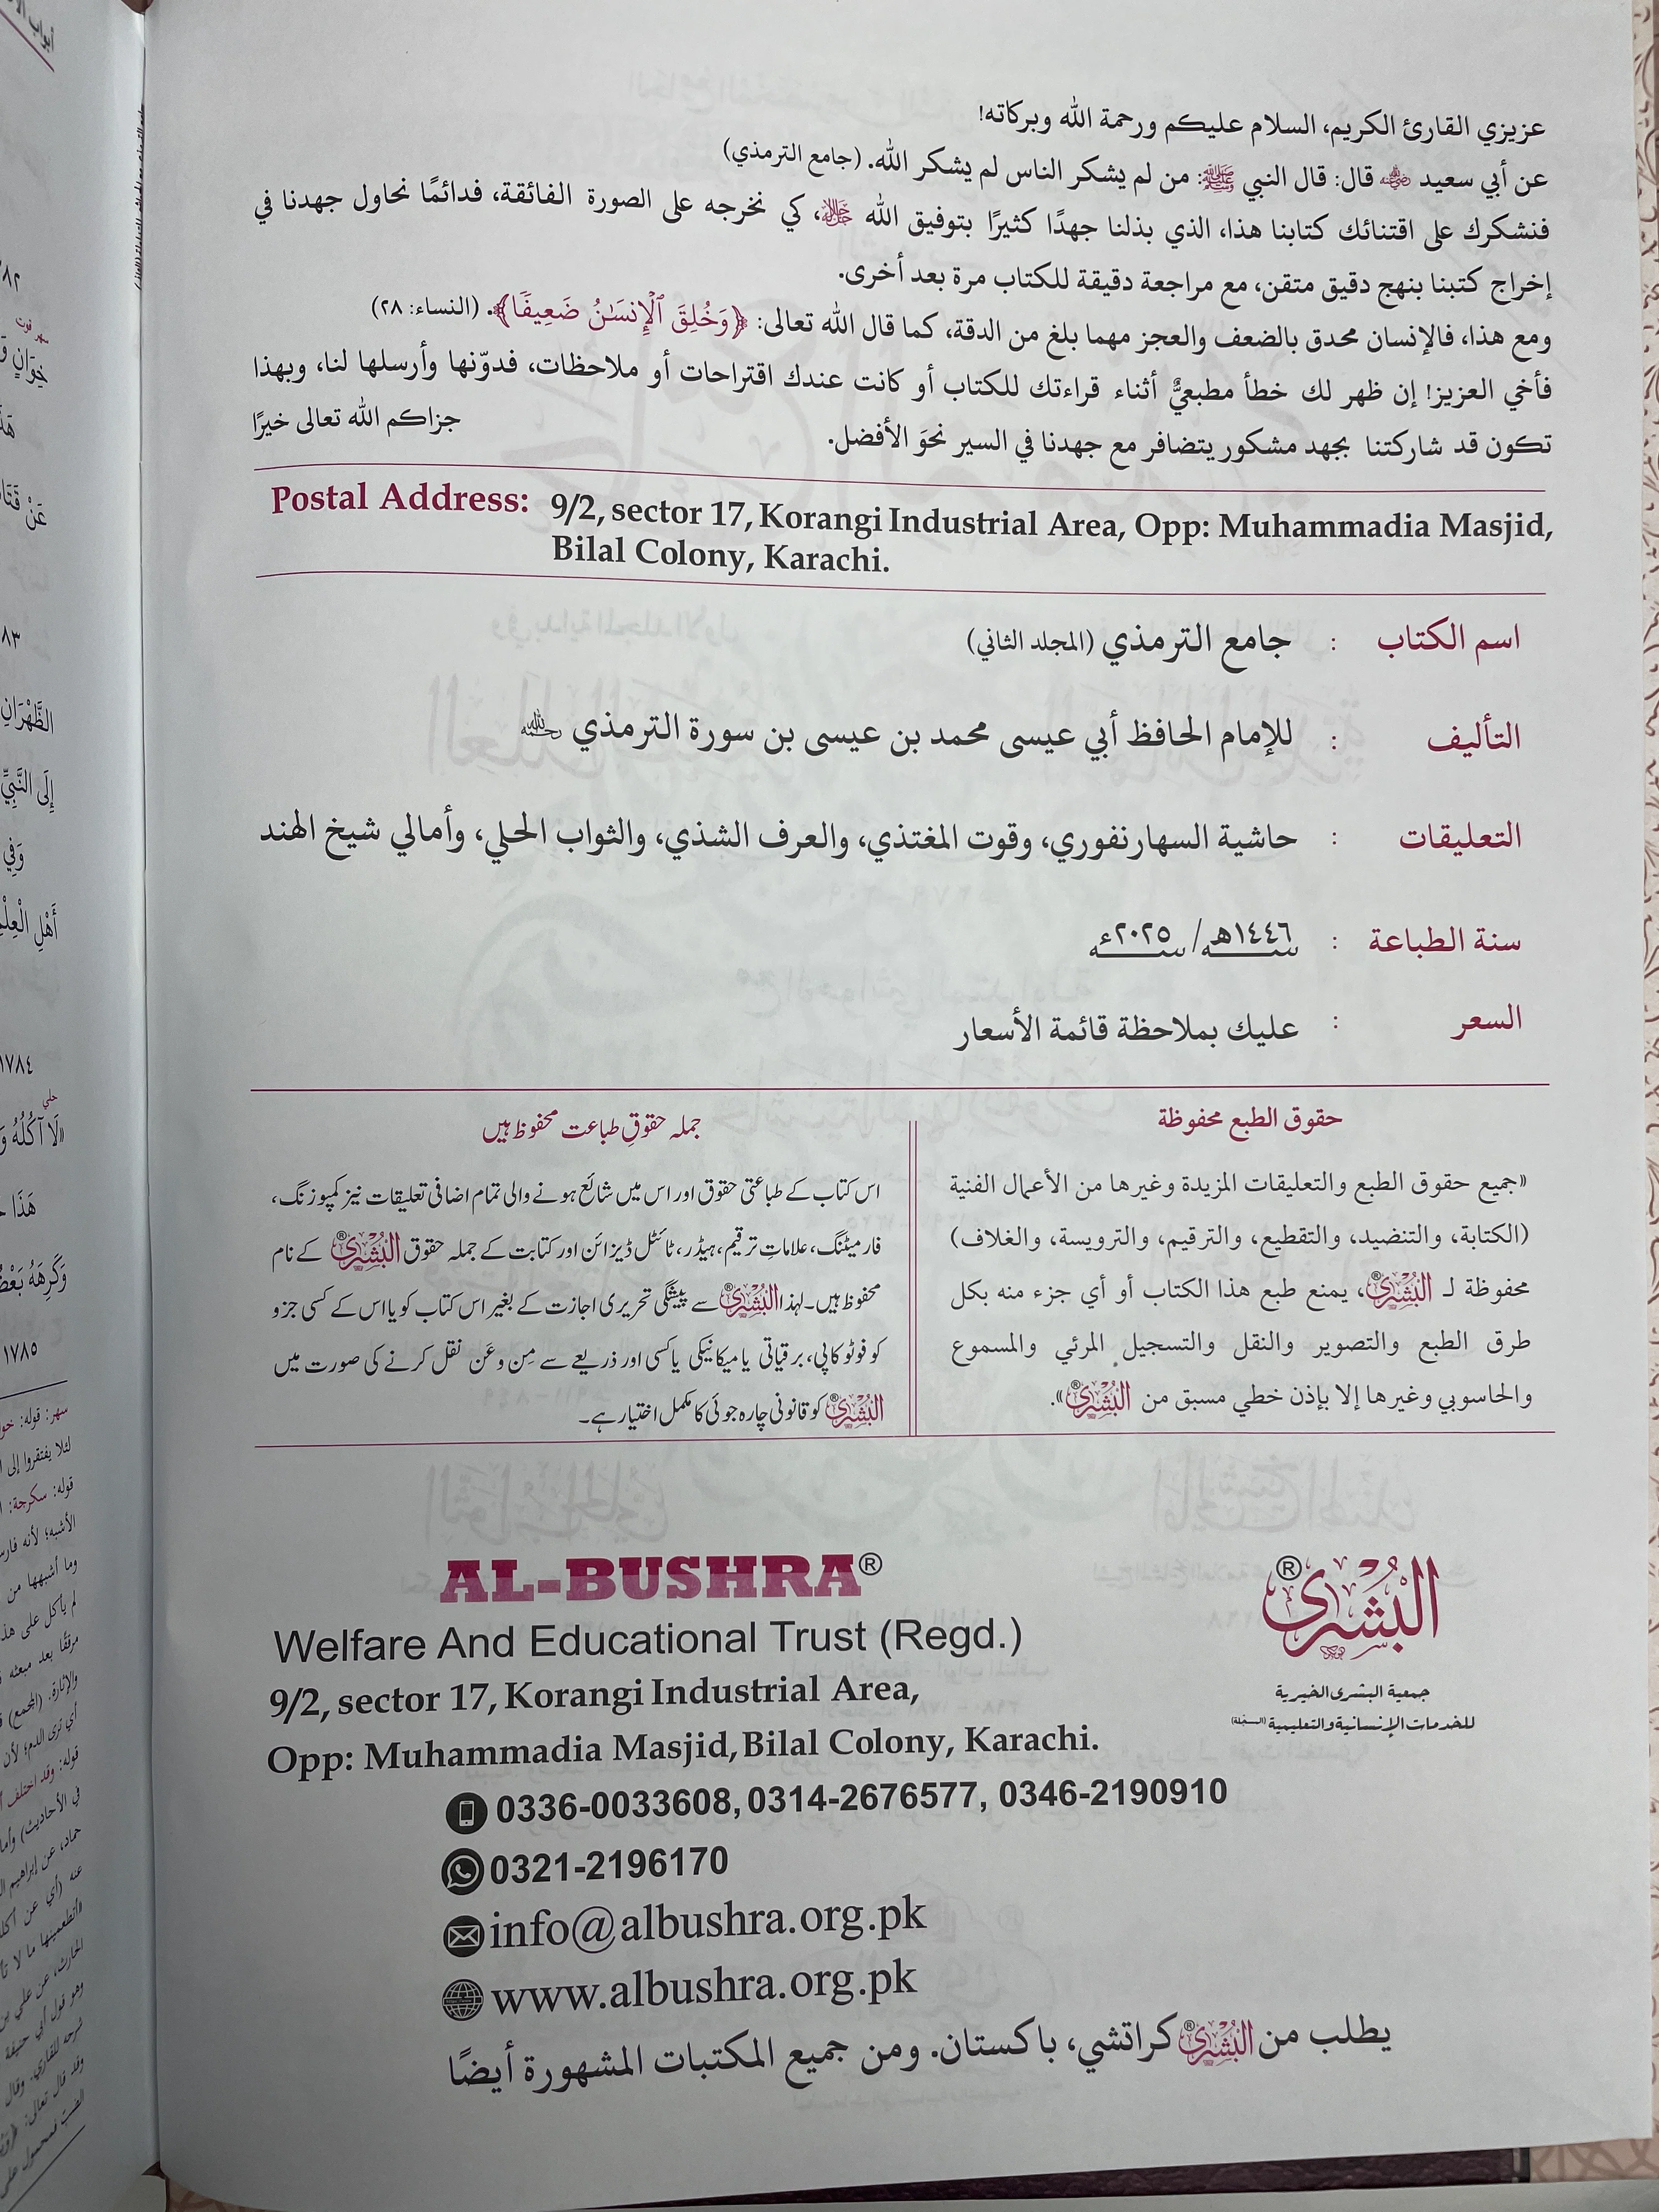 عزيزي القارئ الكريم، السلام عليكم ورحمة الله وبركاته!
عن أبي سعيد ﷺ قال: قال النبي ﷺ: من لم يشكر الناس لم يشكر الله. (جامع الترمذي)
فنشكرك على اقتنائك كتابنا هذا، الذي بذلنا جهدًا كثيرًا بتوفيق الله ﷻ، كي نخرجه على الصورة الفائقة، فدائمًا نحاول جهدنا في
إخراج كتبنا بنهج دقيق متقن، مع مراجعة دقيقة للكتاب مرة بعد أخرى.
ومع هذا، فالإنسان محدق بالضعف والعجز مهما بلغ من الدقة، كما قال الله تعالى: ﴿وَخُلِقَ ٱلْإِنسَٰنُ ضَعِيفًا﴾. (النساء: ٢٨)
فأخي العزيز! إن ظهر لك خطأ مطبعيٌّ أثناء قراءتك للكتاب أو كانت عندك اقتراحات أو ملاحظات، فدوّنها وأرسلها لنا، وبهذا
تكون قد شاركتنا بجهد مشكور يتضافر مع جهدنا في السير نحوَ الأفضل. جزاكم الله تعالى خيرًا
Postal Address: 9/2, sector 17, Korangi Industrial Area, Opp: Muhammadia Masjid,
Bilal Colony, Karachi.
اسم الكتاب : جامع الترمذي (المجلد الثاني)
التأليف : للإمام الحافظ أبي عيسى محمد بن عيسى بن سورة الترمذي رحمه الله
التعليقات : حاشية السهارنفوري، وقوت المغتذي، والعرف الشذي، والثواب الحلي، وأمالي شيخ الهند
سنة الطباعة : ١٤٤٦هـ / ٢٠٢٥ء
السعر : عليك بملاحظة قائمة الأسعار
حقوق الطبع محفوظة
«جميع حقوق الطبع والتعليقات المزيدة وغيرها من الأعمال الفنية
(الكتابة، والتنضيد، والتقطيع، والترقيم، والترويسة، والغلاف)
محفوظة لـ البُشرى®، يمنع طبع هذا الكتاب أو أي جزء منه بكل
طرق الطبع والتصوير والنقل والتسجيل المرئي والمسموع
والحاسوبي وغيرها إلا بإذن خطي مسبق من البُشرى®».
جملہ حقوقِ طباعت محفوظ ہیں
اس کتاب کے طباعتی حقوق اور اس میں شائع ہونے والی تمام اضافی تعلیقات نیز کمپوزنگ،
فارمیٹنگ، علامات ترقیم، ہیڈر، ٹائٹل ڈیزائن اور کتابت کے جملہ حقوق البُشرى® کے نام
محفوظ ہیں۔ لہٰذا البُشرى® سے پیشگی تحریری اجازت کے بغیر اس کتاب کو یا اس کے کسی جزو
کو فوٹو کاپی، برقیاتی یا میکانیکی یا کسی اور ذریعے سے مِن وعَن نقل کرنے کی صورت میں
البُشرى® کو قانونی چارہ جوئی کا مکمل اختیار ہے۔
AL-BUSHRA®
Welfare And Educational Trust (Regd.)
9/2, sector 17, Korangi Industrial Area,
Opp: Muhammadia Masjid, Bilal Colony, Karachi.
البُشرى®
جمعية البشرى الخيرية
للخدمات الإنسانية والتعليمية (المسجلة)
0336-0033608, 0314-2676577, 0346-2190910
0321-2196170
info@albushra.org.pk
www.albushra.org.pk
يطلب من البُشرى® كراتشي، باكستان. ومن جميع المكتبات المشهورة أيضًا